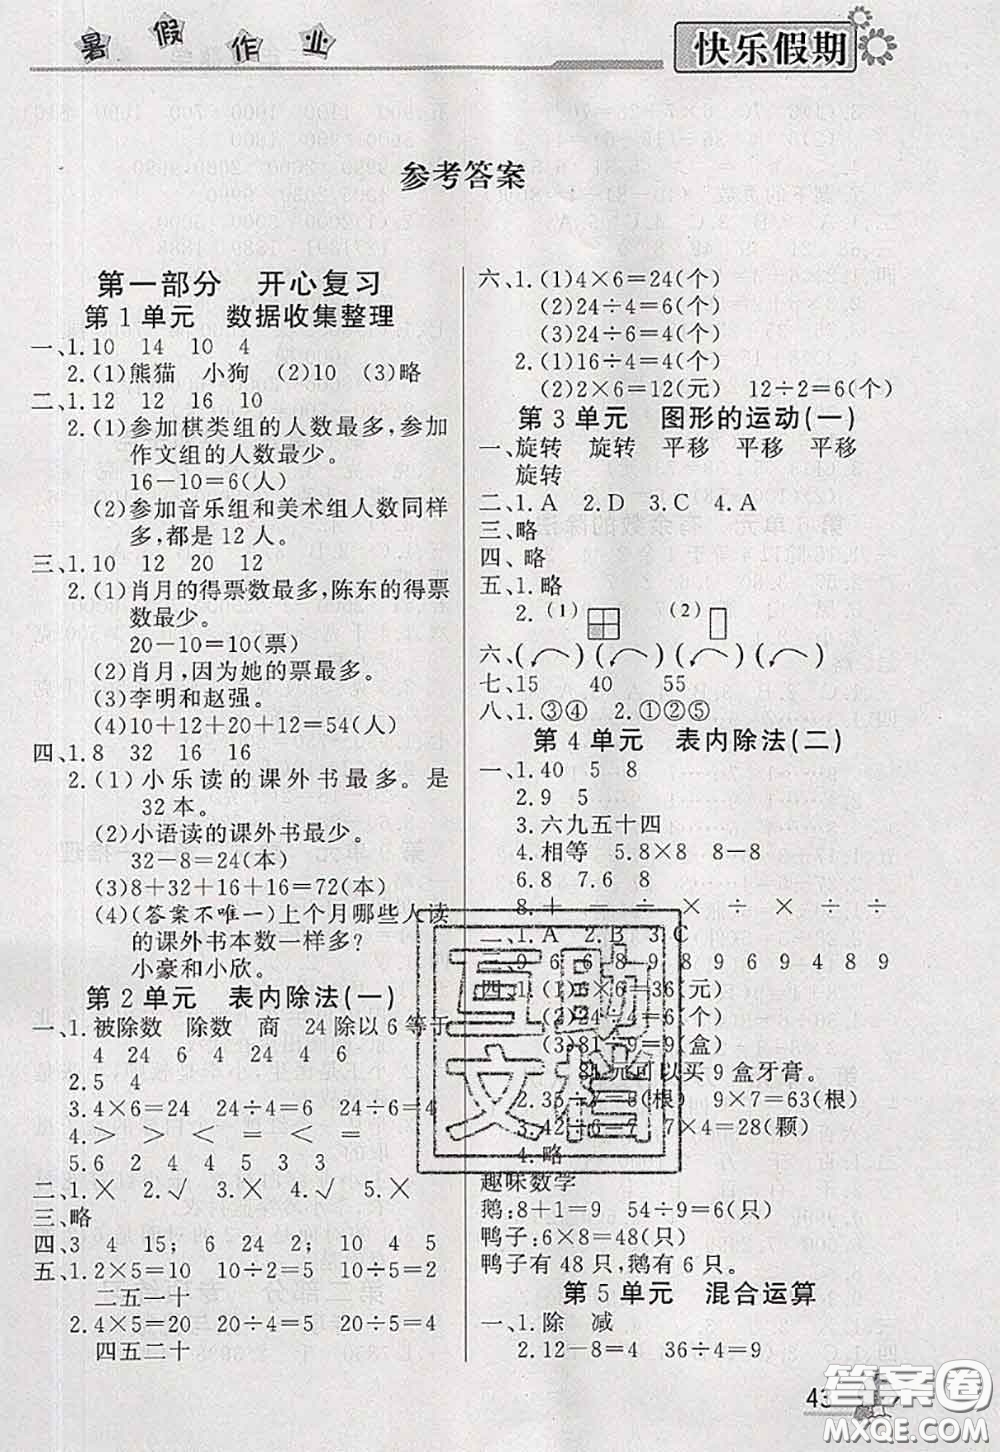 暑假作业
快乐假期
参考答案
第一部分 开心复习
第1单元 数据收集整理
一、1.10 14 10 4
2.(1)熊猫 小狗 (2)10 (3)略
二、1.12 12 16 10
2.(1)参加棋类组的人数最多,参加
作文组的人数最少。
16－10＝6(人)
(2)参加音乐组和美术组人数同样
多,都是12人。
三、1.10 12 20 12
2.(1)肖月的得票数最多,陈东的得票
数最少。
20－10＝10(票)
(2)肖月,因为她的票最多。
(3)李明和赵强。
(4)10＋12＋20＋12＝54(人)
四、1.8 32 16 16
2.(1)小乐读的课外书最多。是
32本。
(2)小语读的课外书最少。
32－8＝24(本)
(3)8＋32＋16＋16＝72(本)
(4)(答案不唯一)上个月哪些人读
的课外书本数一样多?
小豪和小欣。
第2单元 表内除法(一)
一、1.被除数 除数 商 24除以6等于
4 24 6 4 24 4 6
2.5 4
3.4×6＝24 24÷6＝4 24÷4＝6
4.＞ ＞ ＜ ＝ ＜ ＝
5.6 2 4 4 5 3 3
二、1.× 2.√ 3.× 4.√ 5.×
三、略
四、3 4 15; 6 24 2; 10 4 5
五、1.2×5＝10 10÷2＝5 10÷5＝2
二五一十
2.4×5＝20 20÷4＝5 20÷5＝4
四五二十
六、1.(1)4×6＝24(个)
(2)24÷4＝6(个)
(3)24÷6＝4(个)
2.(1)16÷4＝4(个)
(2)2×6＝12(元) 12÷2＝6(个)
第3单元 图形的运动(一)
一、旋转 旋转 平移 平移 平移
旋转
二、1.A 2.D 3.C 4.A
三、略
四、略
五、1.略
2.(1) (2)
六、( )( )( )( )
七、15 40 55
八、1.③④ 2.①②⑤
第4单元 表内除法(二)
一、1.40 5 8
2.9 5
3.六九五十四
4.相等 5.8×8 8－8
6.8 7.6 8
8.＋ － ÷ × ÷ × ÷ ÷
二、1.A 2.B 3.C
三、9 6 6 8 9 6 9 6 9 4 8 9
四、1.(1)6×6＝36(元)
(2)24÷4＝6(个)
(3)81÷9＝9(盒)
81元可以买9盒牙膏。
2.35÷7＝ (根) 9×7＝63(根)
3.42÷6＝7 7×4＝28(颗)
4.略
趣味数学
鹅:8＋1＝9 54÷9＝6(只)
鸭子:6×8＝48(只)
鸭子有48只,鹅有6只。
第5单元 混合运算
一、1.除 减
2.12－8＝4 36÷4＝9
43
互助文档
答案圈
MXQE.COM